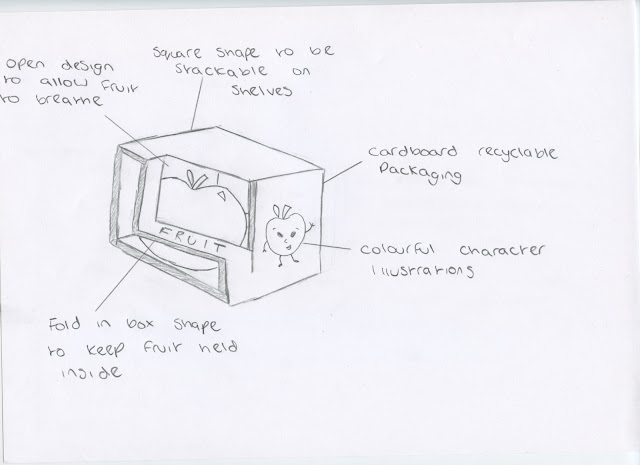 open design
to allow fruit
to breathe
Square shape to be
stackable on
shelves
cardboard recyclable
Packaging
colourful character
illustrations
FRUIT
Fold in box shape
to keep fruit held
inside